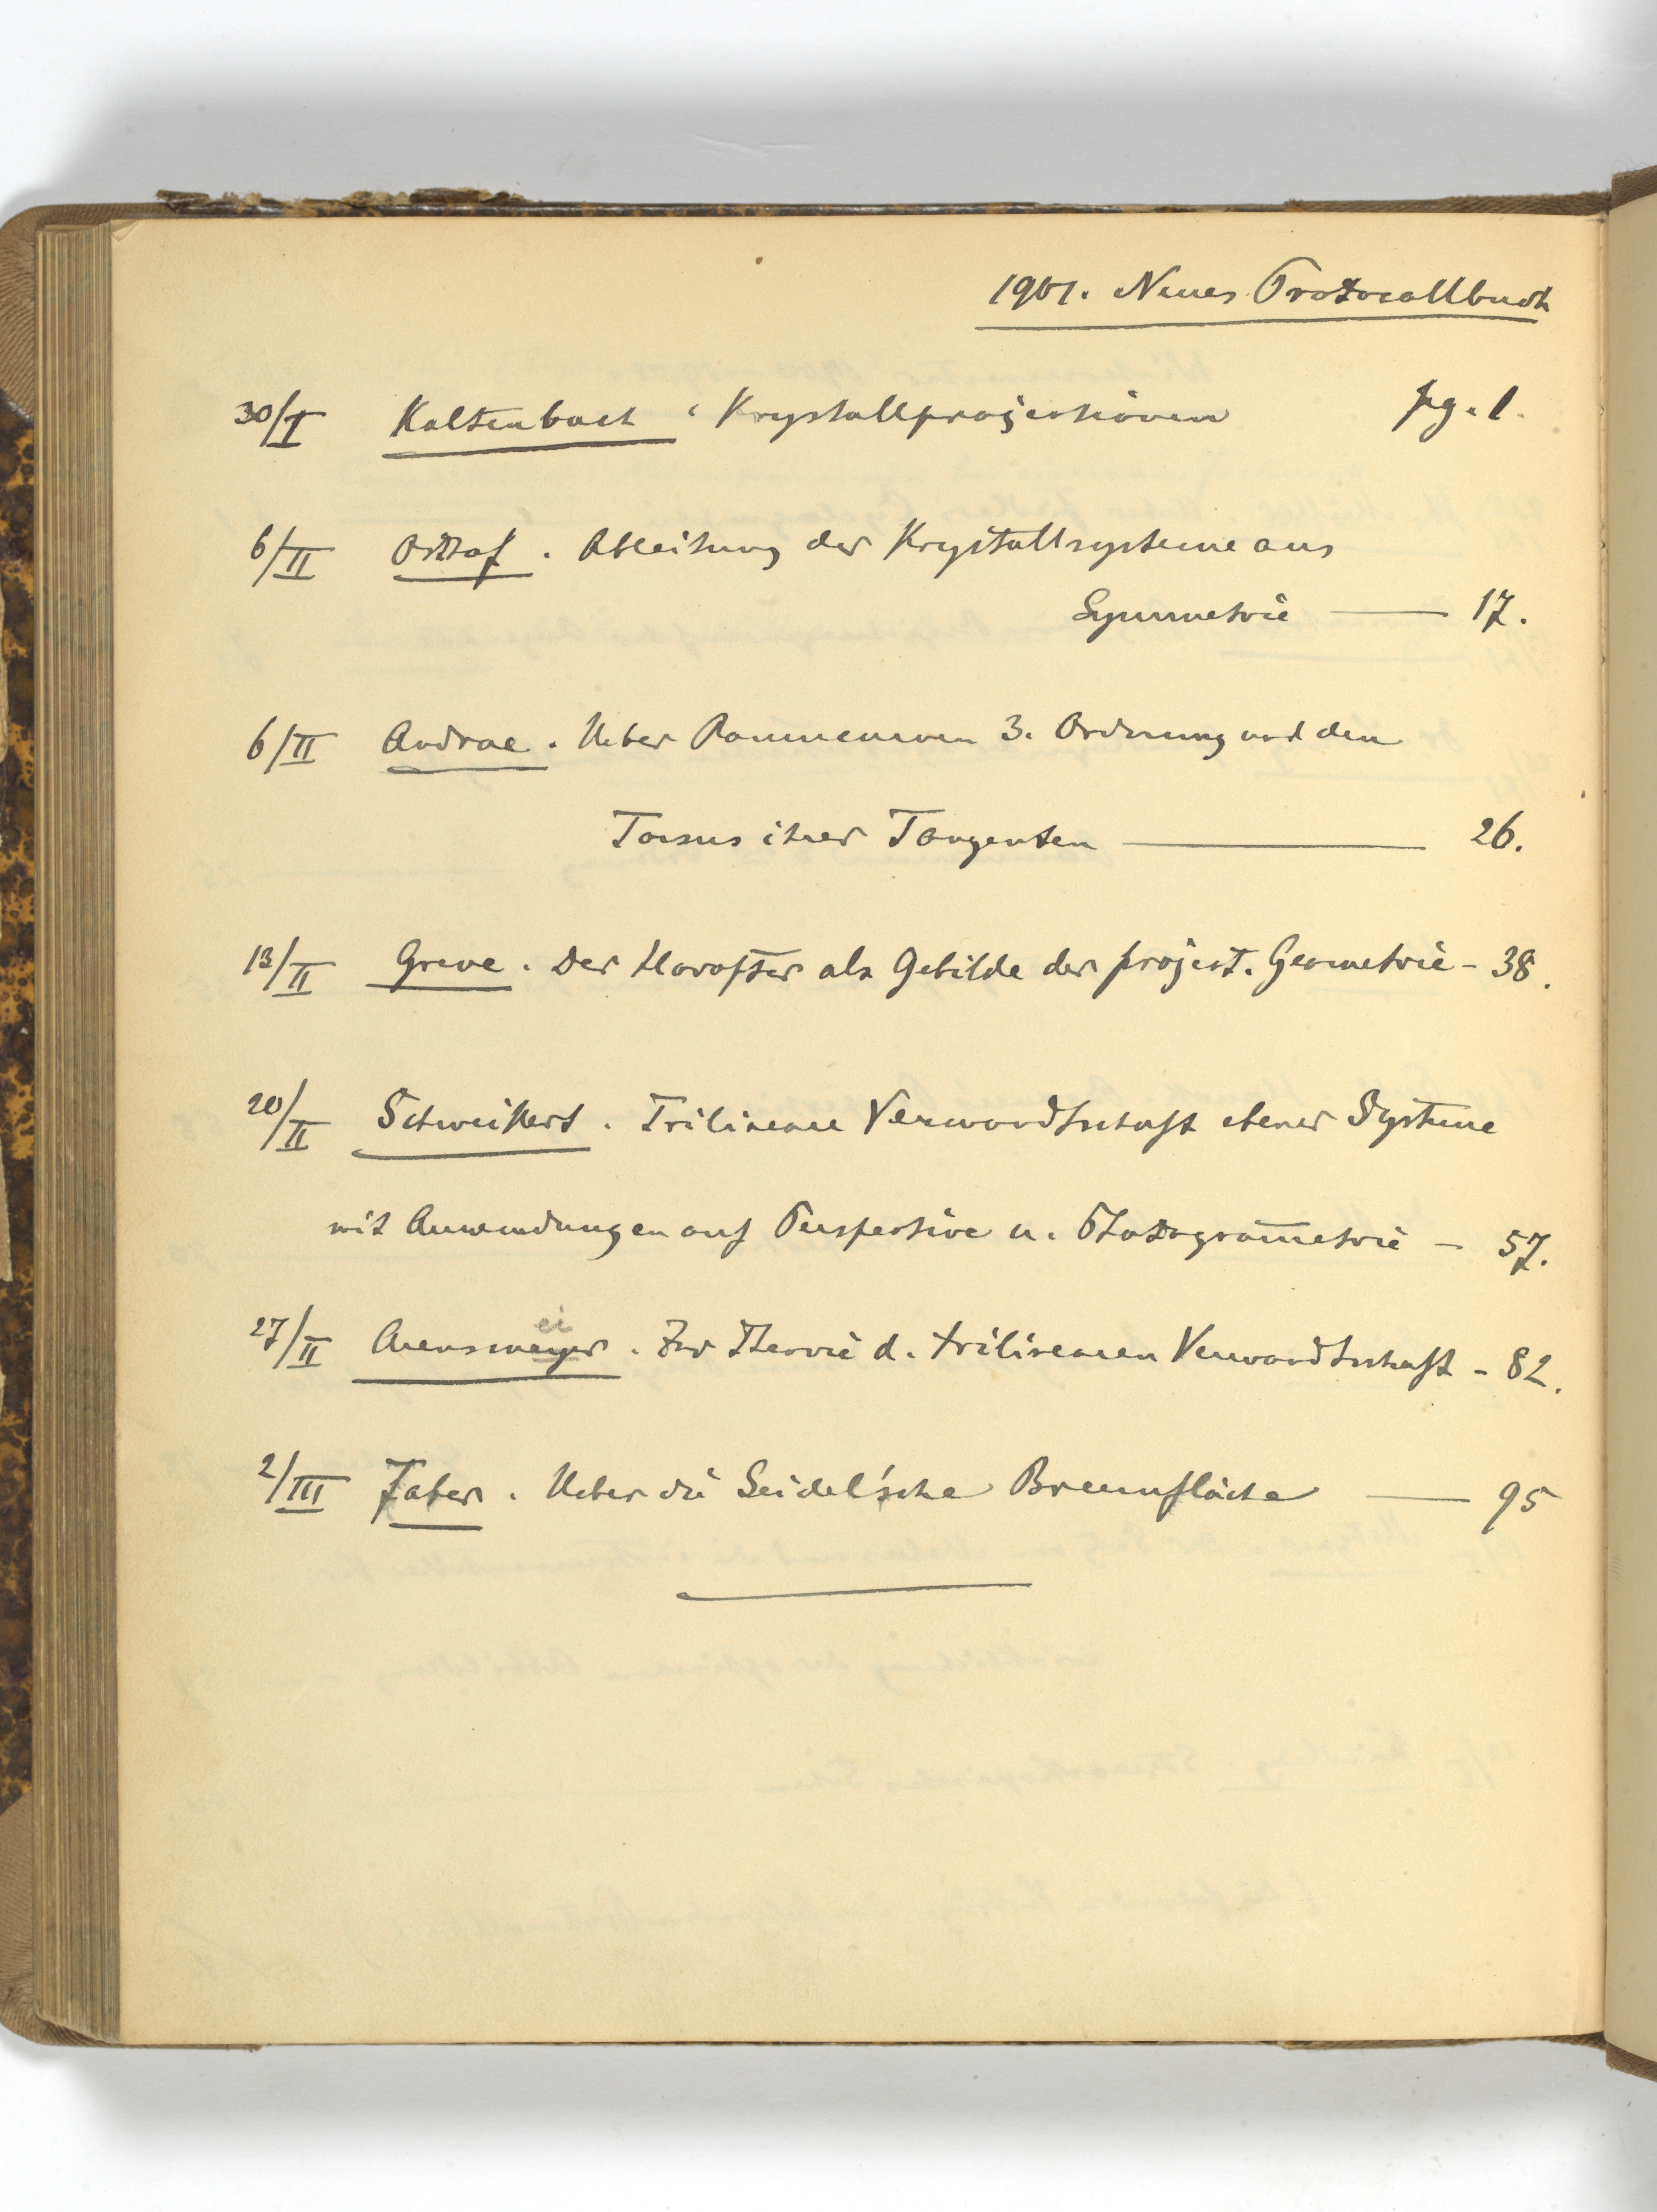 1901. Neues Protocollbuch
30/I Kaltenbach. Krystallprojectionen pg. 1.
6/II Osthof. Ableitung der Krystallsysteme aus
Symmetrie — 17.
6/II Andrae. Ueber Raumcurven 3. Ordnung und den
Torsus ihrer Tangenten — 26.
13/II Greve. Der Horopter als Gebilde der project. Geometrie - 38.
20/II Schweikert. Trilineare Verwandtschaft ebener Systeme
mit Anwendungen auf Perspective u. Photogrammetrie - 57.
ei
27/II Arensmeyer. Zur Theorie d. trilinearen Verwandtschaft - 82.
2/III Faber. Ueber die Seidel'sche Brennfläche — 95